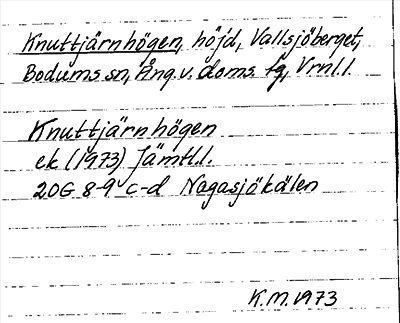 Knuttjärnhögen, höjd, Vallsjöberget,
Bodums sn, Ång.v. doms. fg, Vrnl.l.
Knuttjärnhögen
ek (1973) Jämtl.l.
20G 8-9 c-d Nagasjökälen
K.M. 1973